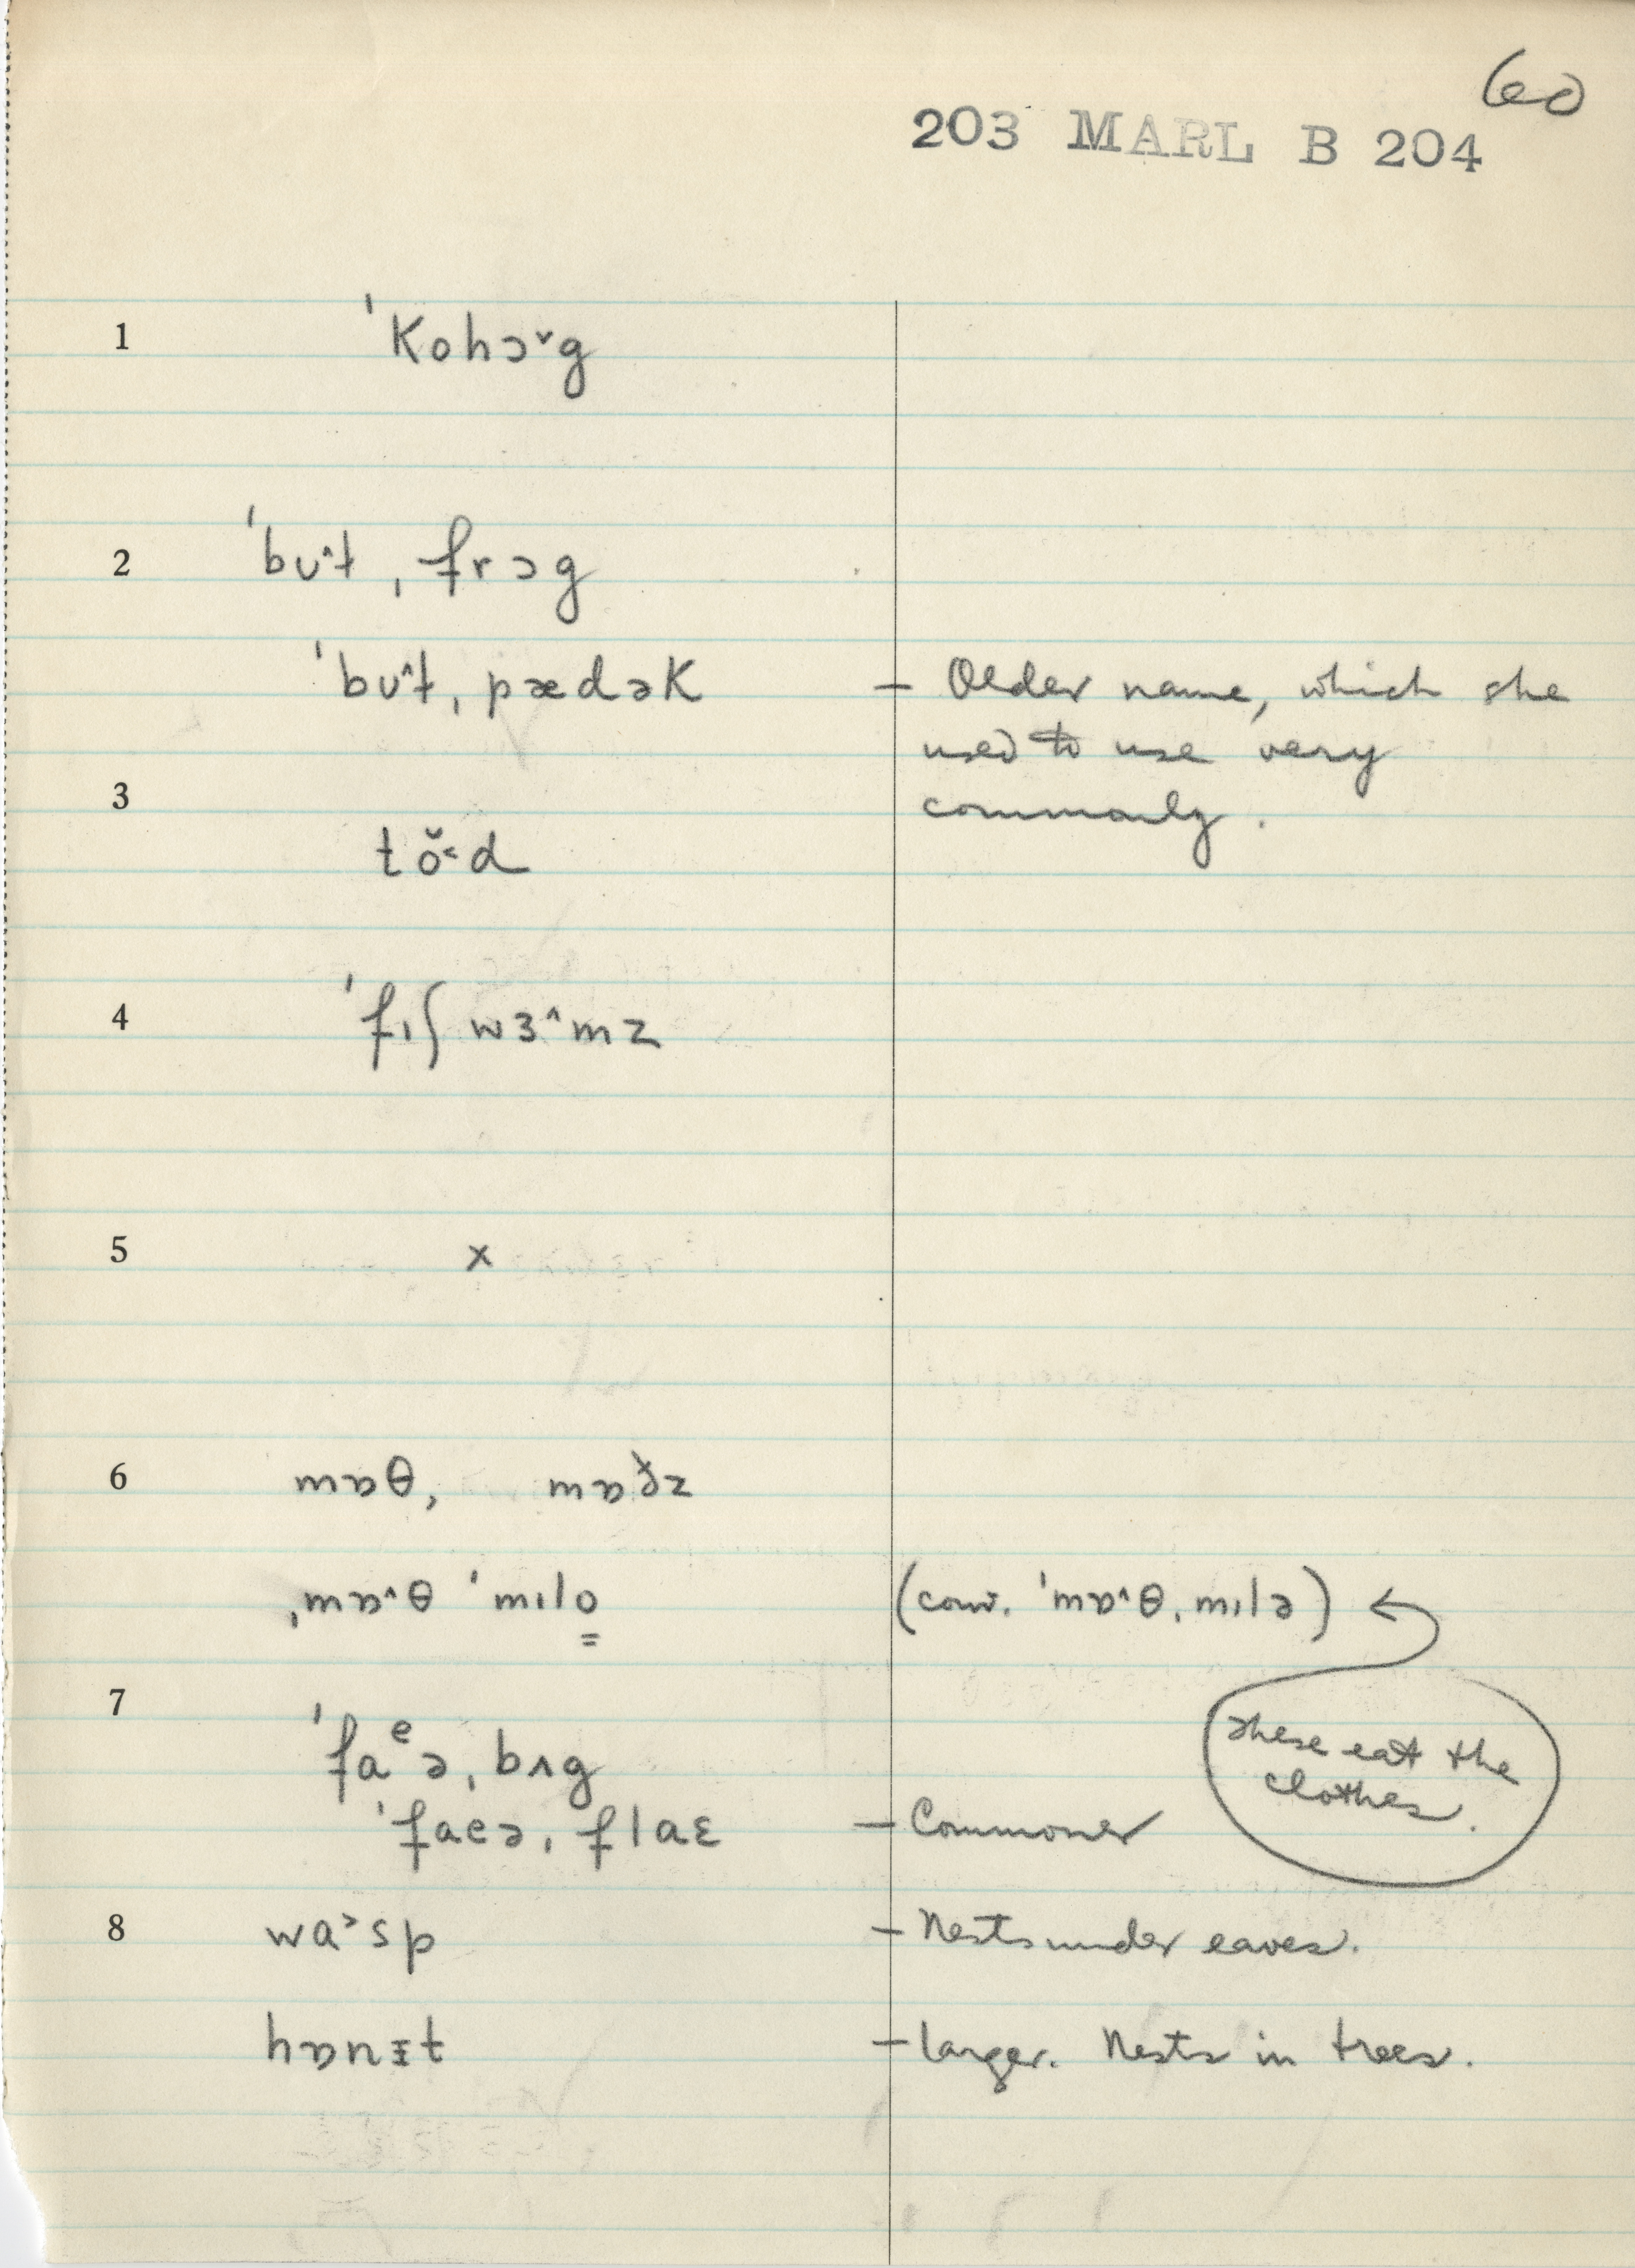 60
203 MARL B 204
1 ˈkohɔ˅g
2 ˈbʊ˄t ˌfrɔg
ˈbʊ˄t ˌpædək – Older name, which she
used to use very
3 commonly.
tŏ˂d
4 ˈfɪʃ wɜ˄mz
5 x
6 mɒθ, mɒðz
ˌmɒ˄θ ˈmɪlo̳ (conv. ˈmɒ˄θˌmɪlə) ←
7 ˈfaᵉəˌbʌg These eat the
clothes.
ˈfaeəˌflaɛ – Commoner
8 wa˃sp – Nests under eaves.
hɒnɪt – larger. Nests in trees.